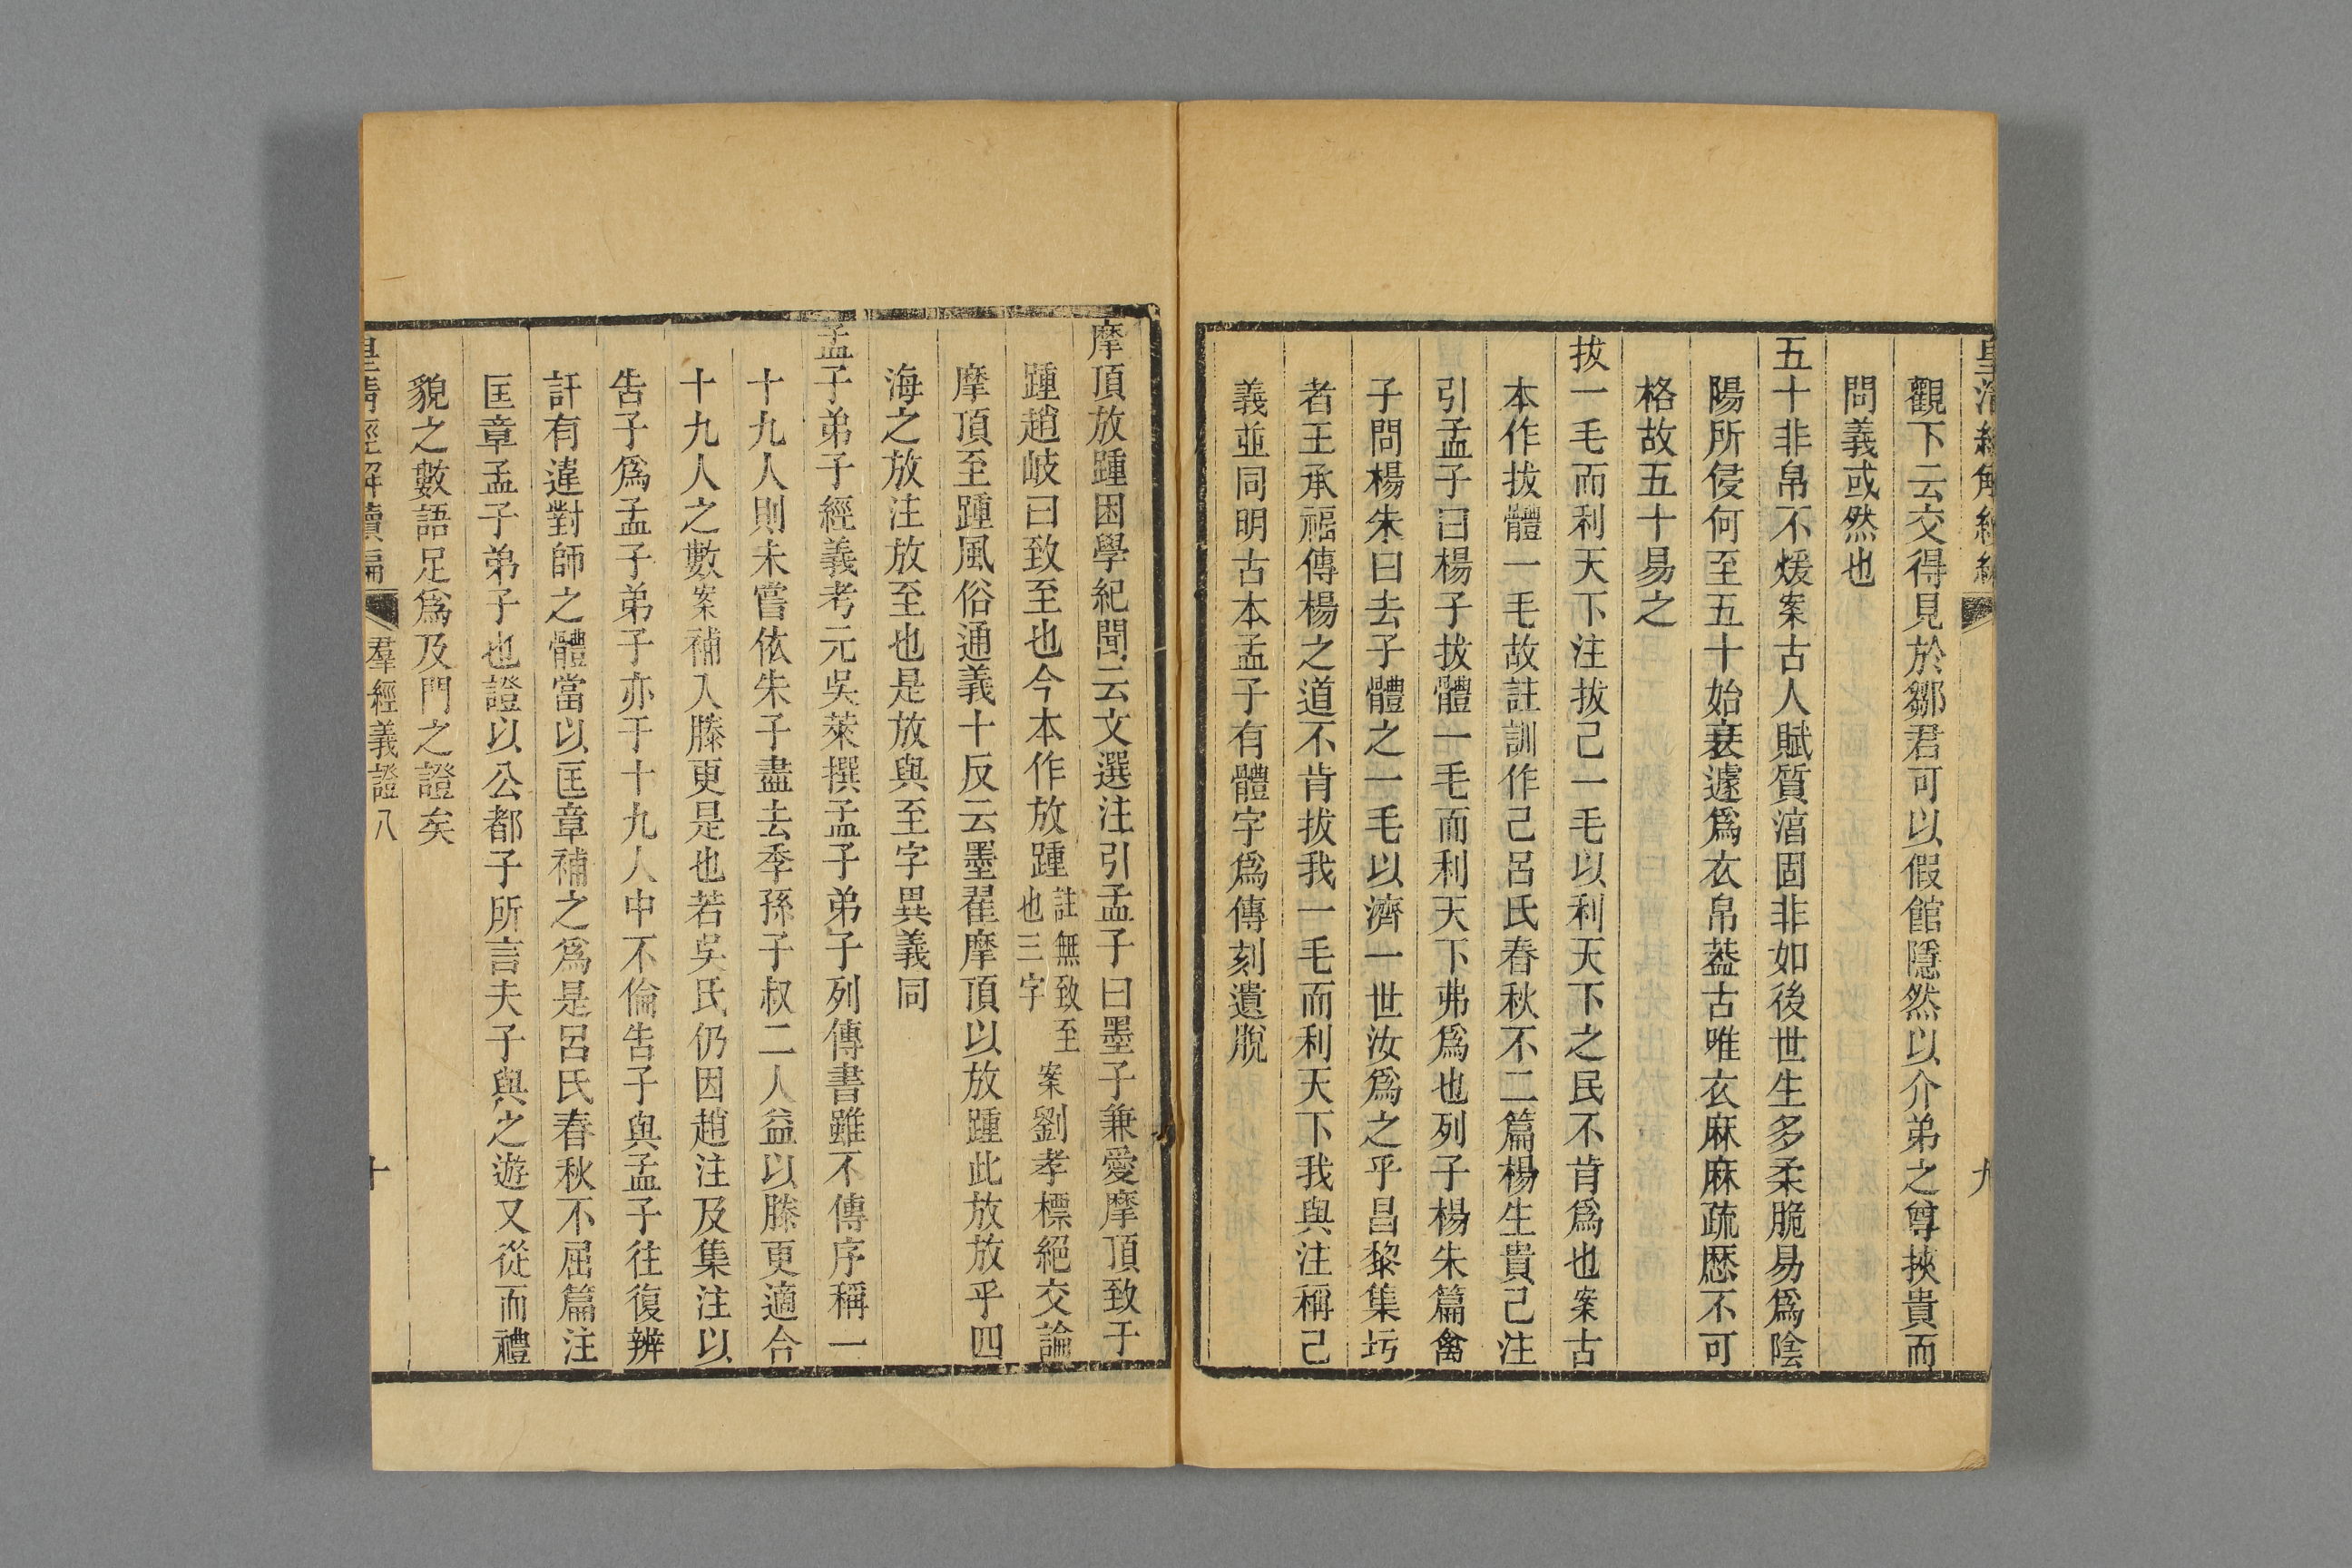 皇清經解續編
九
觀下云交得見於鄒君可以假館隱然以介弟之尊挾貴而
問義或然也
五十非帛不煖案古人賦質湻固非如後世生多柔脆易爲陰
陽所侵何至五十始衰遽爲衣帛葢古唯衣麻麻疏愿不可
格故五十易之
拔一毛而利天下注拔己一毛以利天下之民不肯爲也案古
本作拔體一毛故註訓作己呂氏春秋不二篇楊生貴己注
引孟子曰楊子拔體一毛而利天下弗爲也列子楊朱篇禽
子問楊朱曰去子體之一毛以濟一世汝爲之乎昌黎集圬
者王承福傳楊之道不肯拔我一毛而利天下我與注稱己
義並同明古本孟子有體字爲傳刻遺脫
摩頂放踵困學紀聞云文選注引孟子曰墨子兼愛摩頂致于
踵趙岐曰致至也今本作放踵註無致至也三字案劉孝標絕交論
摩頂至踵風俗通義十反云墨翟摩頂以放踵此放放乎四
海之放注放至也是放與至字異義同
孟子弟子經義考元吳萊撰孟子弟子列傳書雖不傳序稱一
十九人則未嘗依朱子盡去季孫子叔二人益以滕更適合
十九人之數案補入滕更是也若吳氏仍因趙注及集注以
告子爲孟子弟子亦于十九人中不倫告子與孟子往復辨
訐有違對師之體當以匡章補之爲是呂氏春秋不屈篇注
匡章孟子弟子也證以公都子所言夫子與之遊又從而禮
貌之數語足爲及門之證矣
皇清經解續編
羣經義證八
十